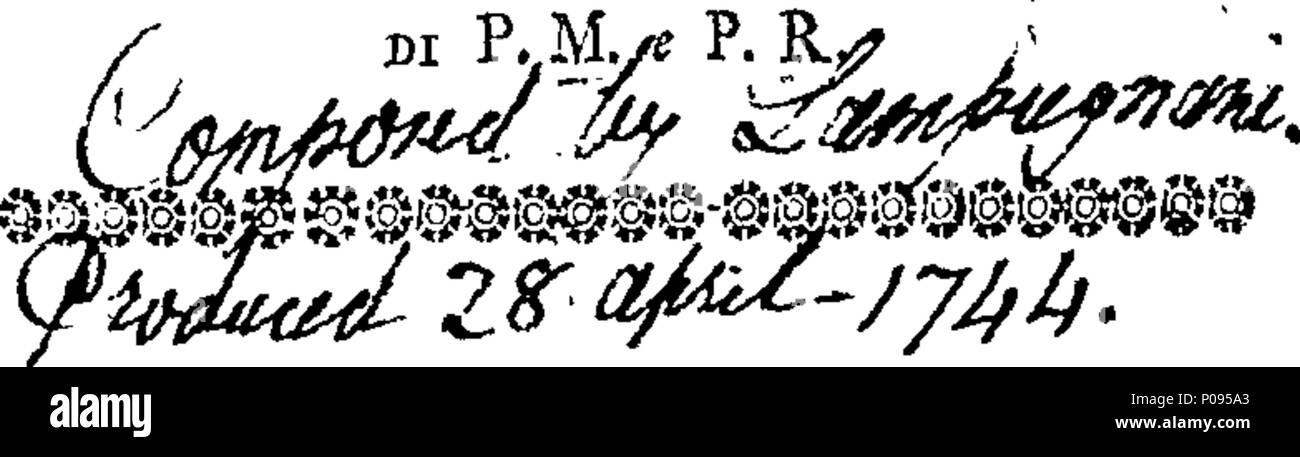 DI P. M. e P. R.
Composed by Lampugnani.
Produced 28 april - 1744.
alamy
Image ID: P095A3
www.alamy.com